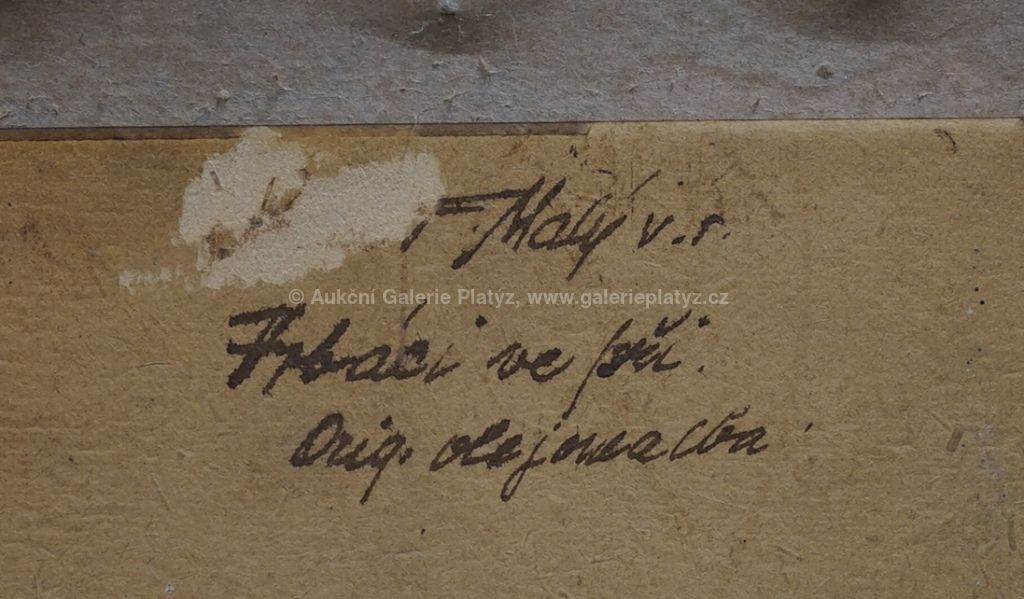 F. Malý v. r.
© Aukční Galerie Platýz, www.galerieplatyz.cz
Hrbáči ve při.
Orig. olejomalba